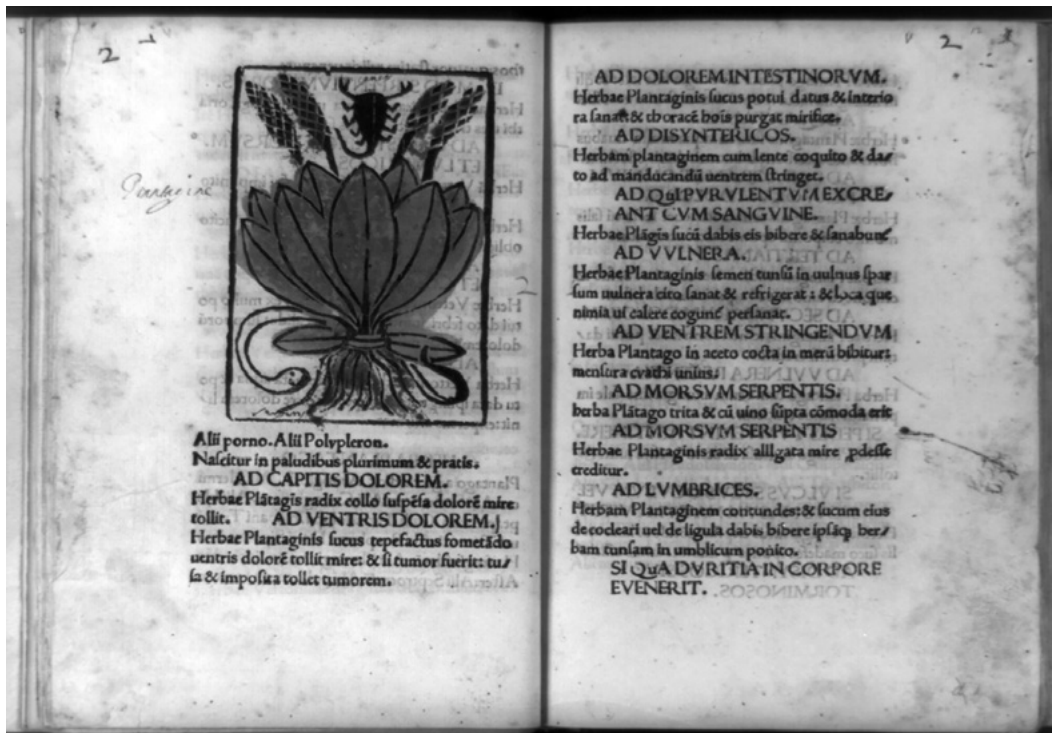 2
Plantagine
Alii porno. Alii Polypleron.
Nascitur in paludibus plurimum & pratis.
AD CAPITIS DOLOREM.
Herbae Plātagis radix collo suspēsa dolorē mire
tollit. AD VENTRIS DOLOREM.
Herbae Plantaginis sucus tepefactus fometādo
uentris dolorē tollit mire: & si tumor fuerit: tu/
sa & imposita tollet tumorem.
2
AD DOLOREM INTESTINORVM.
Herbae Plantaginis sucus potui datus & interio
ra sanat & thoracē hōis purgat mirifice.
AD DISYNTERICOS.
Herbam plantaginem cum lente coquito & da/
to ad manducandū uentrem stringet.
AD QuI PVRVLENTVM EXCRE/
ANT CVM SANGVINE.
Herbae Plāgis sucū dabis eis bibere & sanabunt̃
AD VVLNERA.
Herbae Plantaginis semen tunsū in uulnus spar
sum uulnera cito sanat & refrigerat: & loca que
nimia ui calere cogunt̃ persanat.
AD VENTREM STRINGENDVM
Herba Plantago in aceto cocta in merū bibitur:
mensura cyathi unius.
AD MORSVM SERPENTIS.
herba Plātago trita & cū uino sūpta cōmoda erit
AD MORSVM SERPENTIS
Herbae Plantaginis radix alligata mire pdesse
creditur.
AD LVMBRICES.
Herbam Plantaginem contundes: & sucum eius
de cocleari uel de ligula dabis bibere ipsāq; her/
bam tunsam in umblicum ponito.
SI QuA DVRITIA IN CORPORE
EVENERIT.